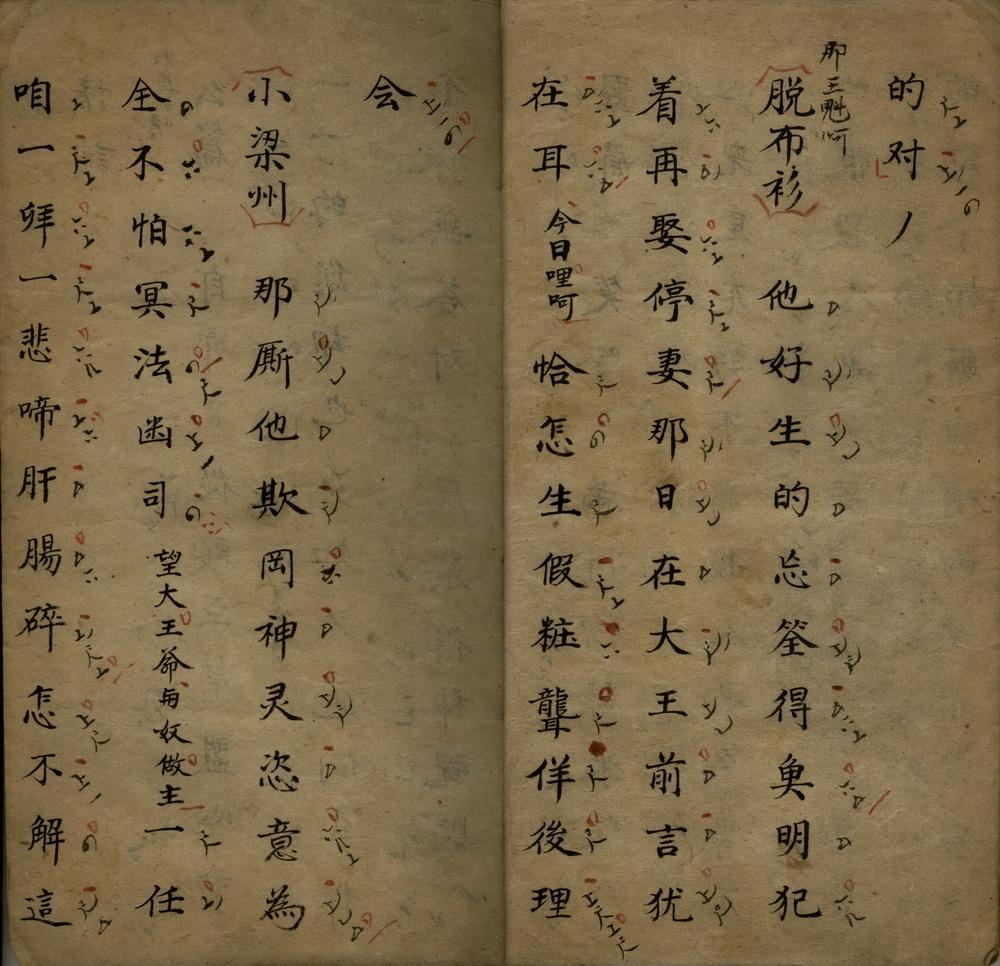 的对
那王魁呵
脱布衫 他好生的忘筌得臾明犯
着再娶停妻那日在大王前言犹
在耳今日哩呵恰怎生假粧聾佯後理
会
小梁州 那厮他欺罔神灵恣意為
全不怕冥法幽司望大王爺與奴做主一任
咱一拜一悲啼肝腸碎怎不解這